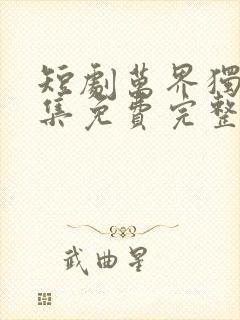 短劇萬界獨
集免費完整
武曲星